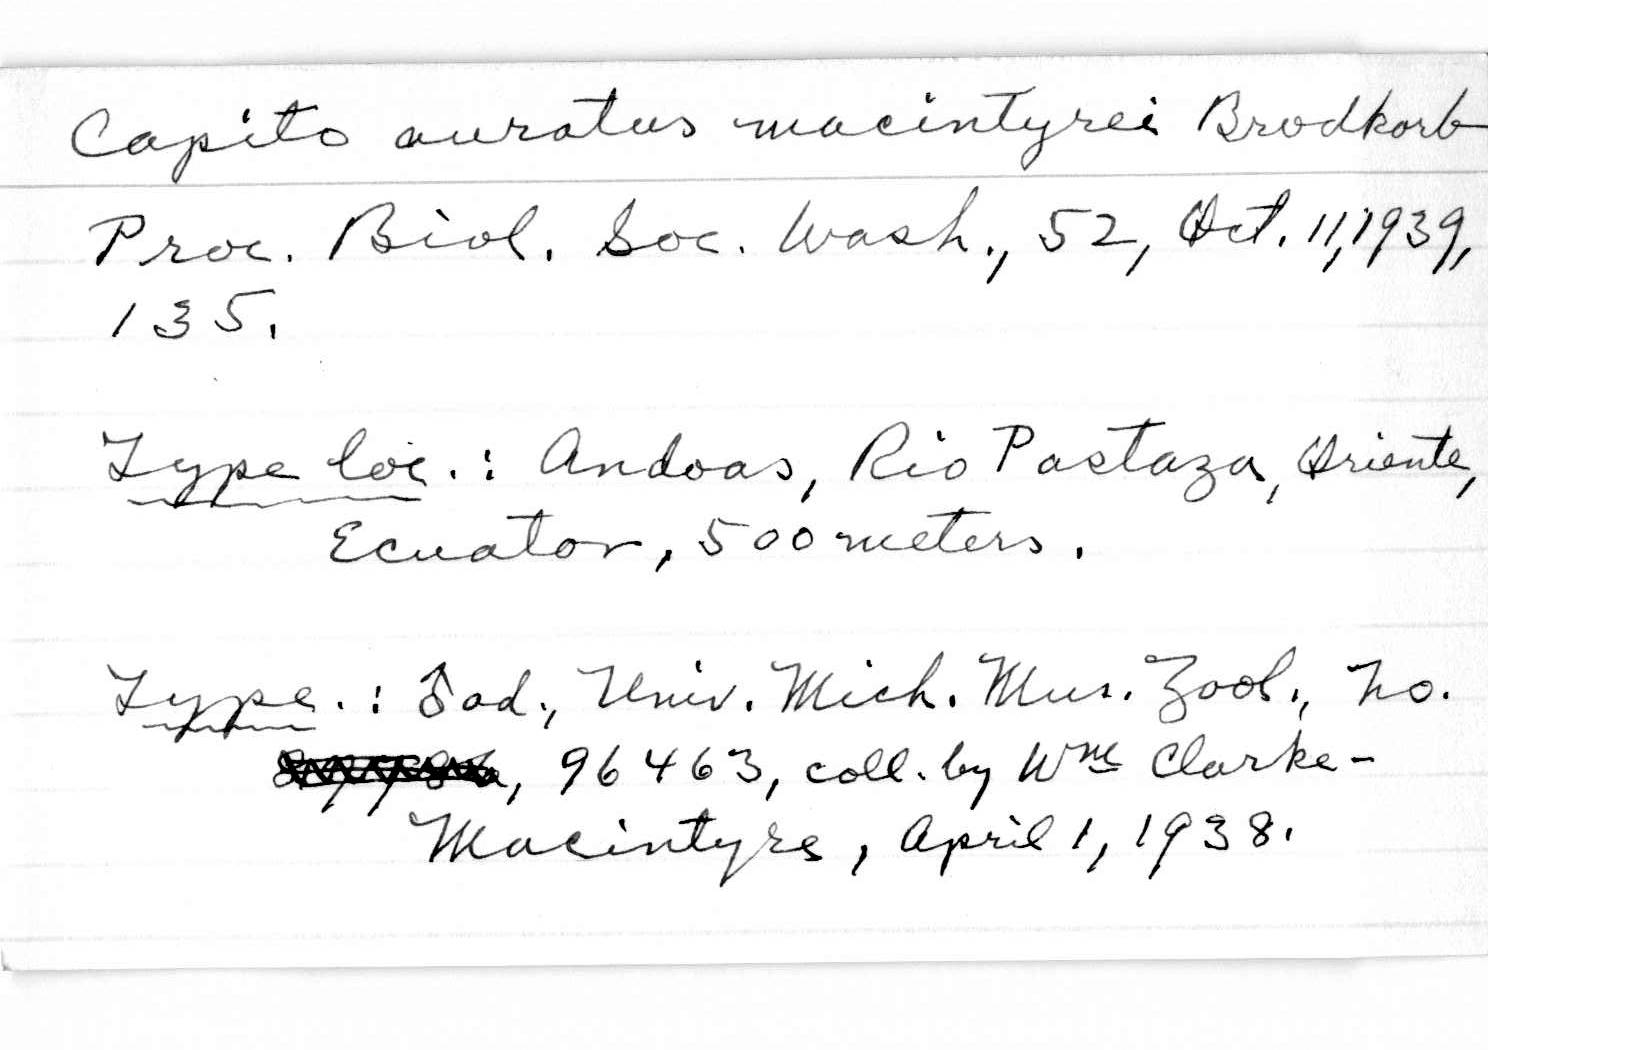 Capito auratus macintyrei Brodkorb
Proc. Biol. Soc. Wash., 52, Oct. 11, 1939,
135.
Type loc.: Andoas, Rio Pastaza, Oriente,
Ecuator, 500 meters.
Type.: ♂ ad., Univ. Mich. Mus. Zool., No.
, 96463, coll. by Wm Clarke-
Macintyre, April 1, 1938.